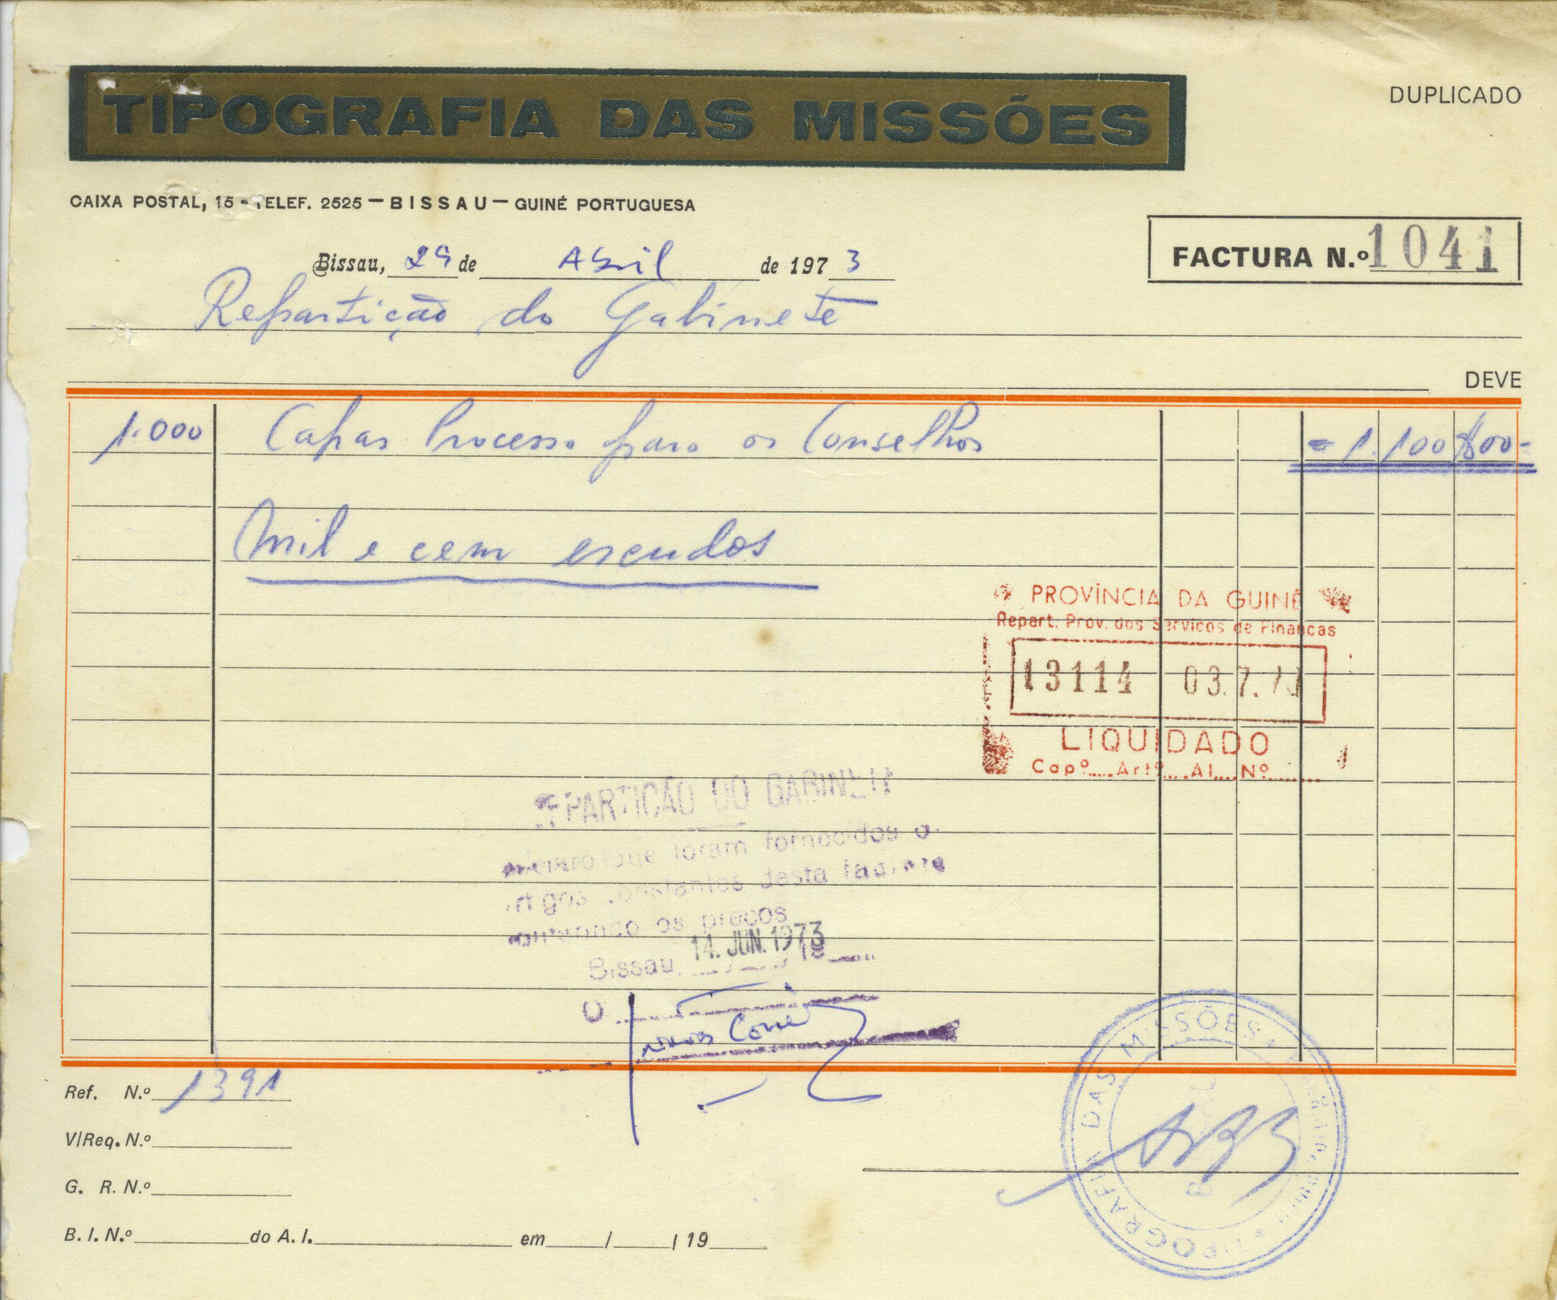 TIPOGRAFIA DAS MISSÕES
DUPLICADO
CAIXA POSTAL, 15 - TELEF. 2525 — BISSAU — GUINÉ PORTUGUESA
FACTURA N.º 1041
Bissau, 29 de Abril de 1973
Repartição do Gabinete
DEVE
1.000 Capas Processo para os Conselhos = 1.100$00-
Mil e cem escudos
PROVÍNCIA DA GUINÉ
Repart. Prov. dos Serviços de Finanças
13114 03.7.73
LIQUIDADO
Capº.... Artº.... Al.... Nº
REPARTIÇÃO DO GABINETE
que foram fornecidos o
artigos constantes desta factura
os preços
Bissau, 14. JUN. 1973
19
O
Ref. N.º 1391
V/Req. N.º
G. R. N.º
B. I. N.º do A. I. em / / 19
TIPOGRAFIA DAS MISSÕES